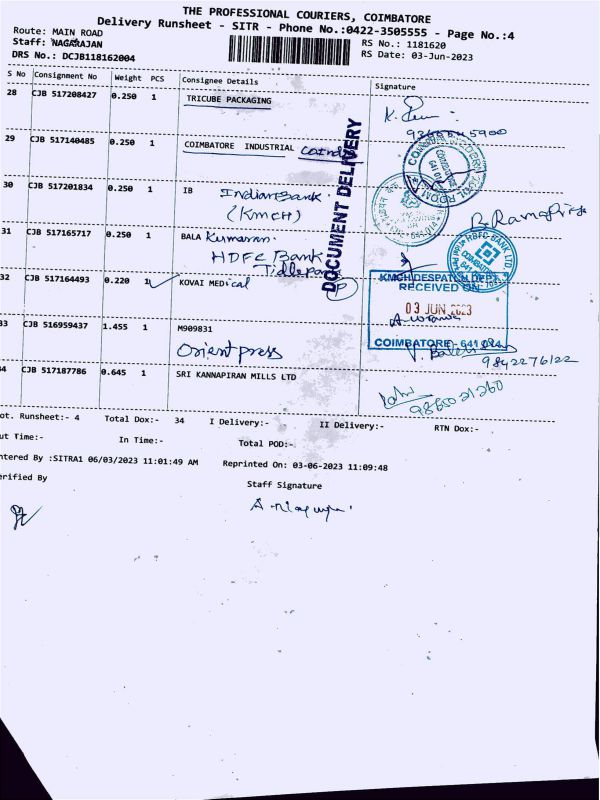 THE PROFESSIONAL COURIERS, COIMBATORE
Delivery Runsheet - SITR - Phone No.:0422-3505555 - Page No.:4
Route: MAIN ROAD
Staff: NAGARAJAN
DRS No.: DCJB118162004
RS No.: 1181620
RS Date: 03-Jun-2023
S No Consignment No Weight PCS Consignee Details Signature
28 CJB 517208427 0.250 1 TRICUBE PACKAGING
29 CJB 517140485 0.250 1 COIMBATORE INDUSTRIAL
30 CJB 517201834 0.250 1 IB Indian Bank
(KMCH)
31 CJB 517165717 0.250 1 BALA Kumaran
HDFC Bank
32 CJB 517164493 0.220 1 KOVAI MEDical
P
33 CJB 516959437 1.455 1 M909831
Orient press
34 CJB 517187786 0.645 1 SRI KANNAPIRAN MILLS LTD
DOCUMENT DELIVERY
HDFC BANK LTD
COIMBATORE
KMCH DESPATCH DEPT.
RECEIVED ON
03 JUN 2023
COIMBATORE - 641 014.
9842276122
9865021260
ot. Runsheet:- 4 Total Dox:- 34 I Delivery:- II Delivery:- RTN Dox:-
ut Time:- In Time:- Total POD:-
ntered By :SITRA1 06/03/2023 11:01:49 AM Reprinted On: 03-06-2023 11:09:48
erified By Staff Signature